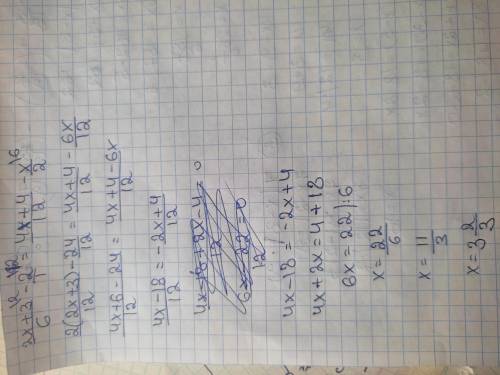 (2x+3)/6 \2 - 2/1 \12 = (4x+4)/12 - x/2 \6
2(2x+3)/12 - 24/12 = (4x+4)/12 - 6x/12
(4x+6-24)/12 = (4x+4-6x)/12
(4x-18)/12 = (-2x+4)/12
(4x-18+2x-4)/12 = 0
(6x-22)/12 = 0
4x-18 = -2x+4
4x+2x = 4+18
6x = 22 |:6
x = 22/6
x = 11/3
x = 3 2/3